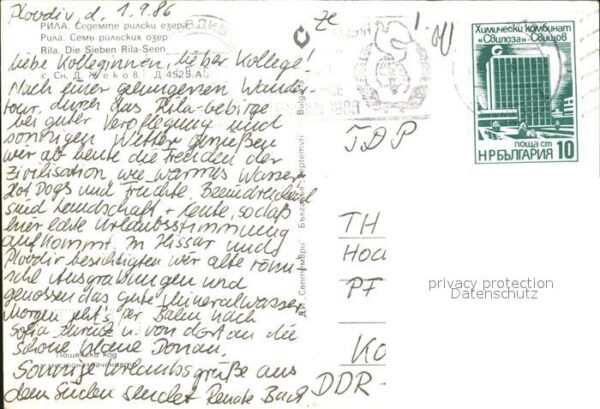 Plovdiv d. 1.9.86
РИЛА. Седемте рилски езера
Рила. Семь рильских озер
Rila. Die Sieben Rila-Seen
Сн. Д. Д-4525-А
Liebe Kolleginnen, lieber Kollege!
Nach einer gelungenen Wander-
tour durch das Rila-Gebirge
bei guter Verpflegung und
sonnigem Wetter genießen
wir ab heute die Freuden der
Zivilisation, wie warmes Wasser
Hot Dogs und Früchte. Beeindruckend
sind Landschaft + Leute, sodaß
hier echte Urlaubsstimmung
aufkommt. In Hissar und
Plovdiv besichtigten wir alte römi-
sche Ausgrabungen und
genossen das gute Mineralwasser
Morgen geht's per Bahn nach
Sofia zurück u. von dort an die
schöne blaue Donau.
Sonnige Urlaubsgrüße aus
dem Süden sendet Renate
Химически комбинат
„Свилоза" - Свищов
поща ст
НРБЪЛГАРИЯ 10
ГДР
TH
Hoc
PF
Ko
DDR-
privacy protection
Datenschutz